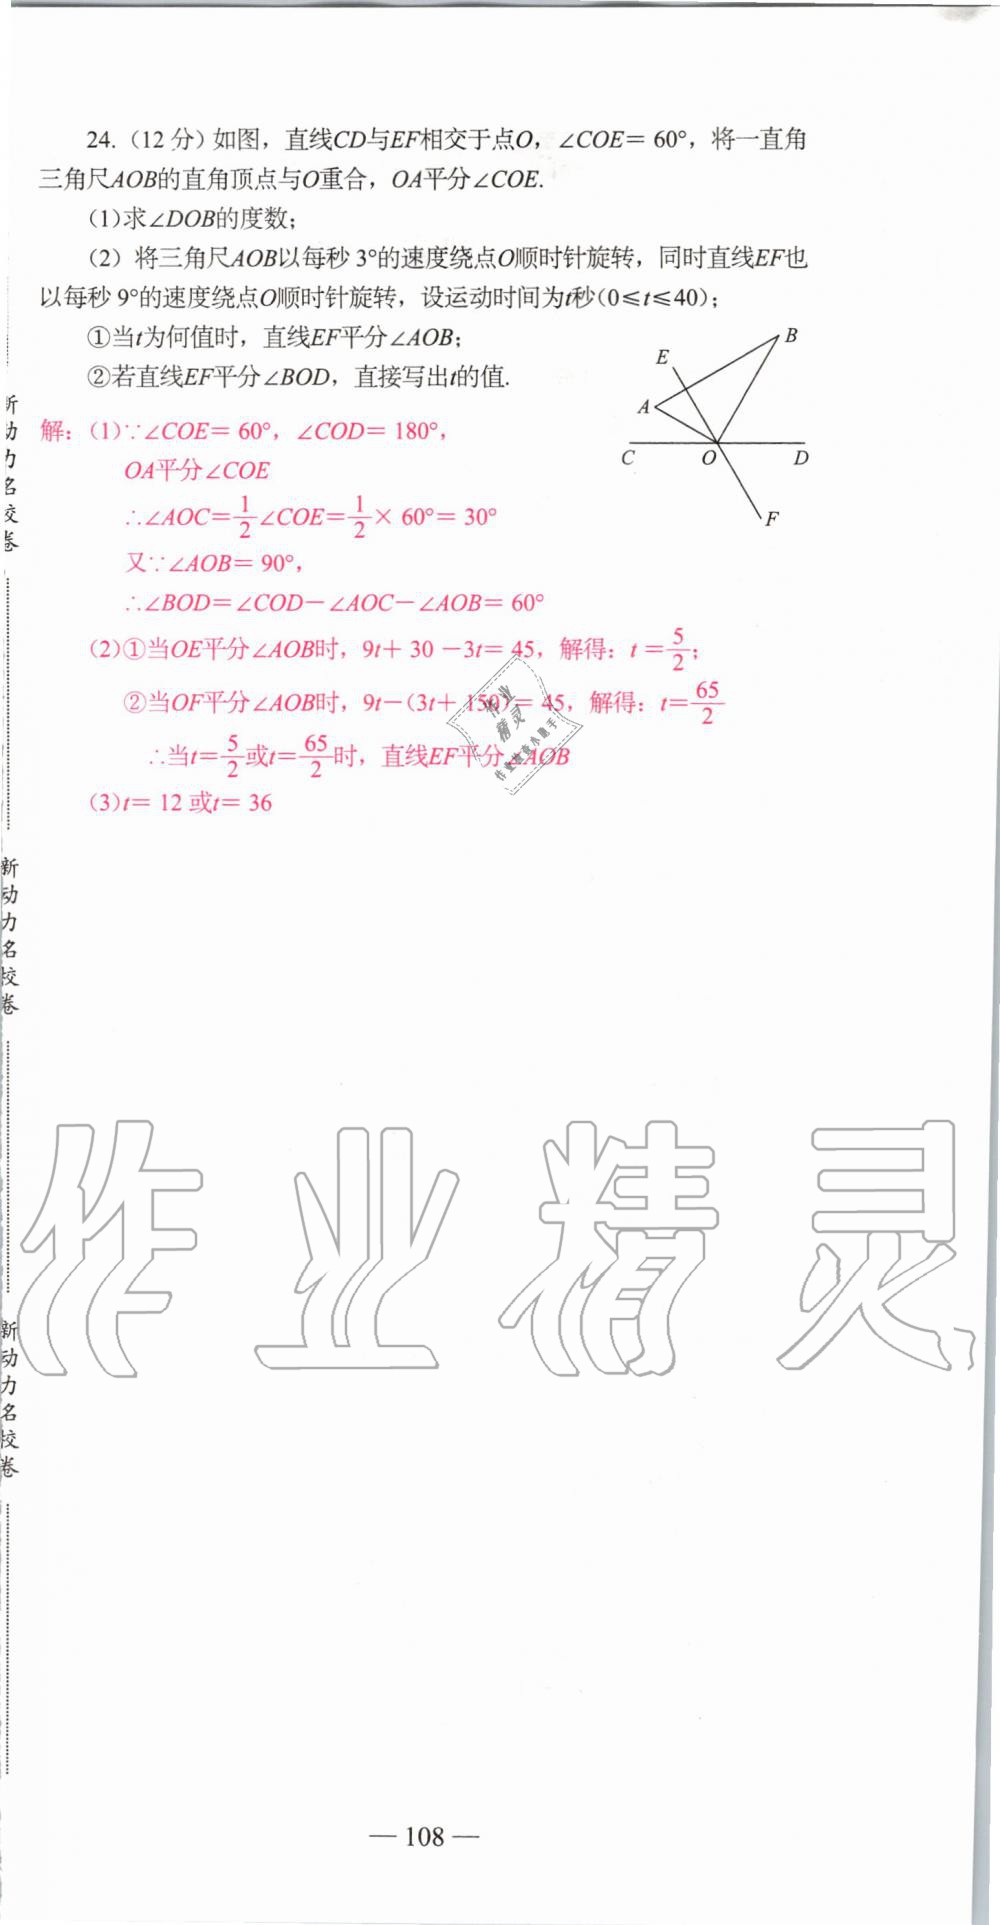 24.（12分）如图，直线CD与EF相交于点O，∠COE= 60°，将一直角
三角尺AOB的直角顶点与O重合，OA平分∠COE.
(1)求∠DOB的度数；
(2) 将三角尺AOB以每秒 3°的速度绕点O顺时针旋转，同时直线EF也
以每秒 9°的速度绕点O顺时针旋转，设运动时间为t秒(0≤t≤40)；
①当t为何值时，直线EF平分∠AOB；
②若直线EF平分∠BOD，直接写出t的值.
E
B
A
C
O
D
F
解：(1)∵∠COE= 60°，∠COD= 180°，
OA平分∠COE
∴∠AOC=1/2∠COE=1/2× 60°= 30°
又∵∠AOB= 90°，
∴∠BOD=∠COD-∠AOC-∠AOB= 60°
(2)①当OE平分∠AOB时，9t+ 30 -3t= 45，解得：t =5/2；
②当OF平分∠AOB时，9t-(3t+ 150)= 45，解得：t=65/2
∴当t=5/2或t=65/2时，直线EF平分∠AOB
(3)t= 12 或t= 36
作业
精灵
作业检查小助手
新动力名校卷
新动力名校卷
新动力名校卷
作业精灵
— 108 —